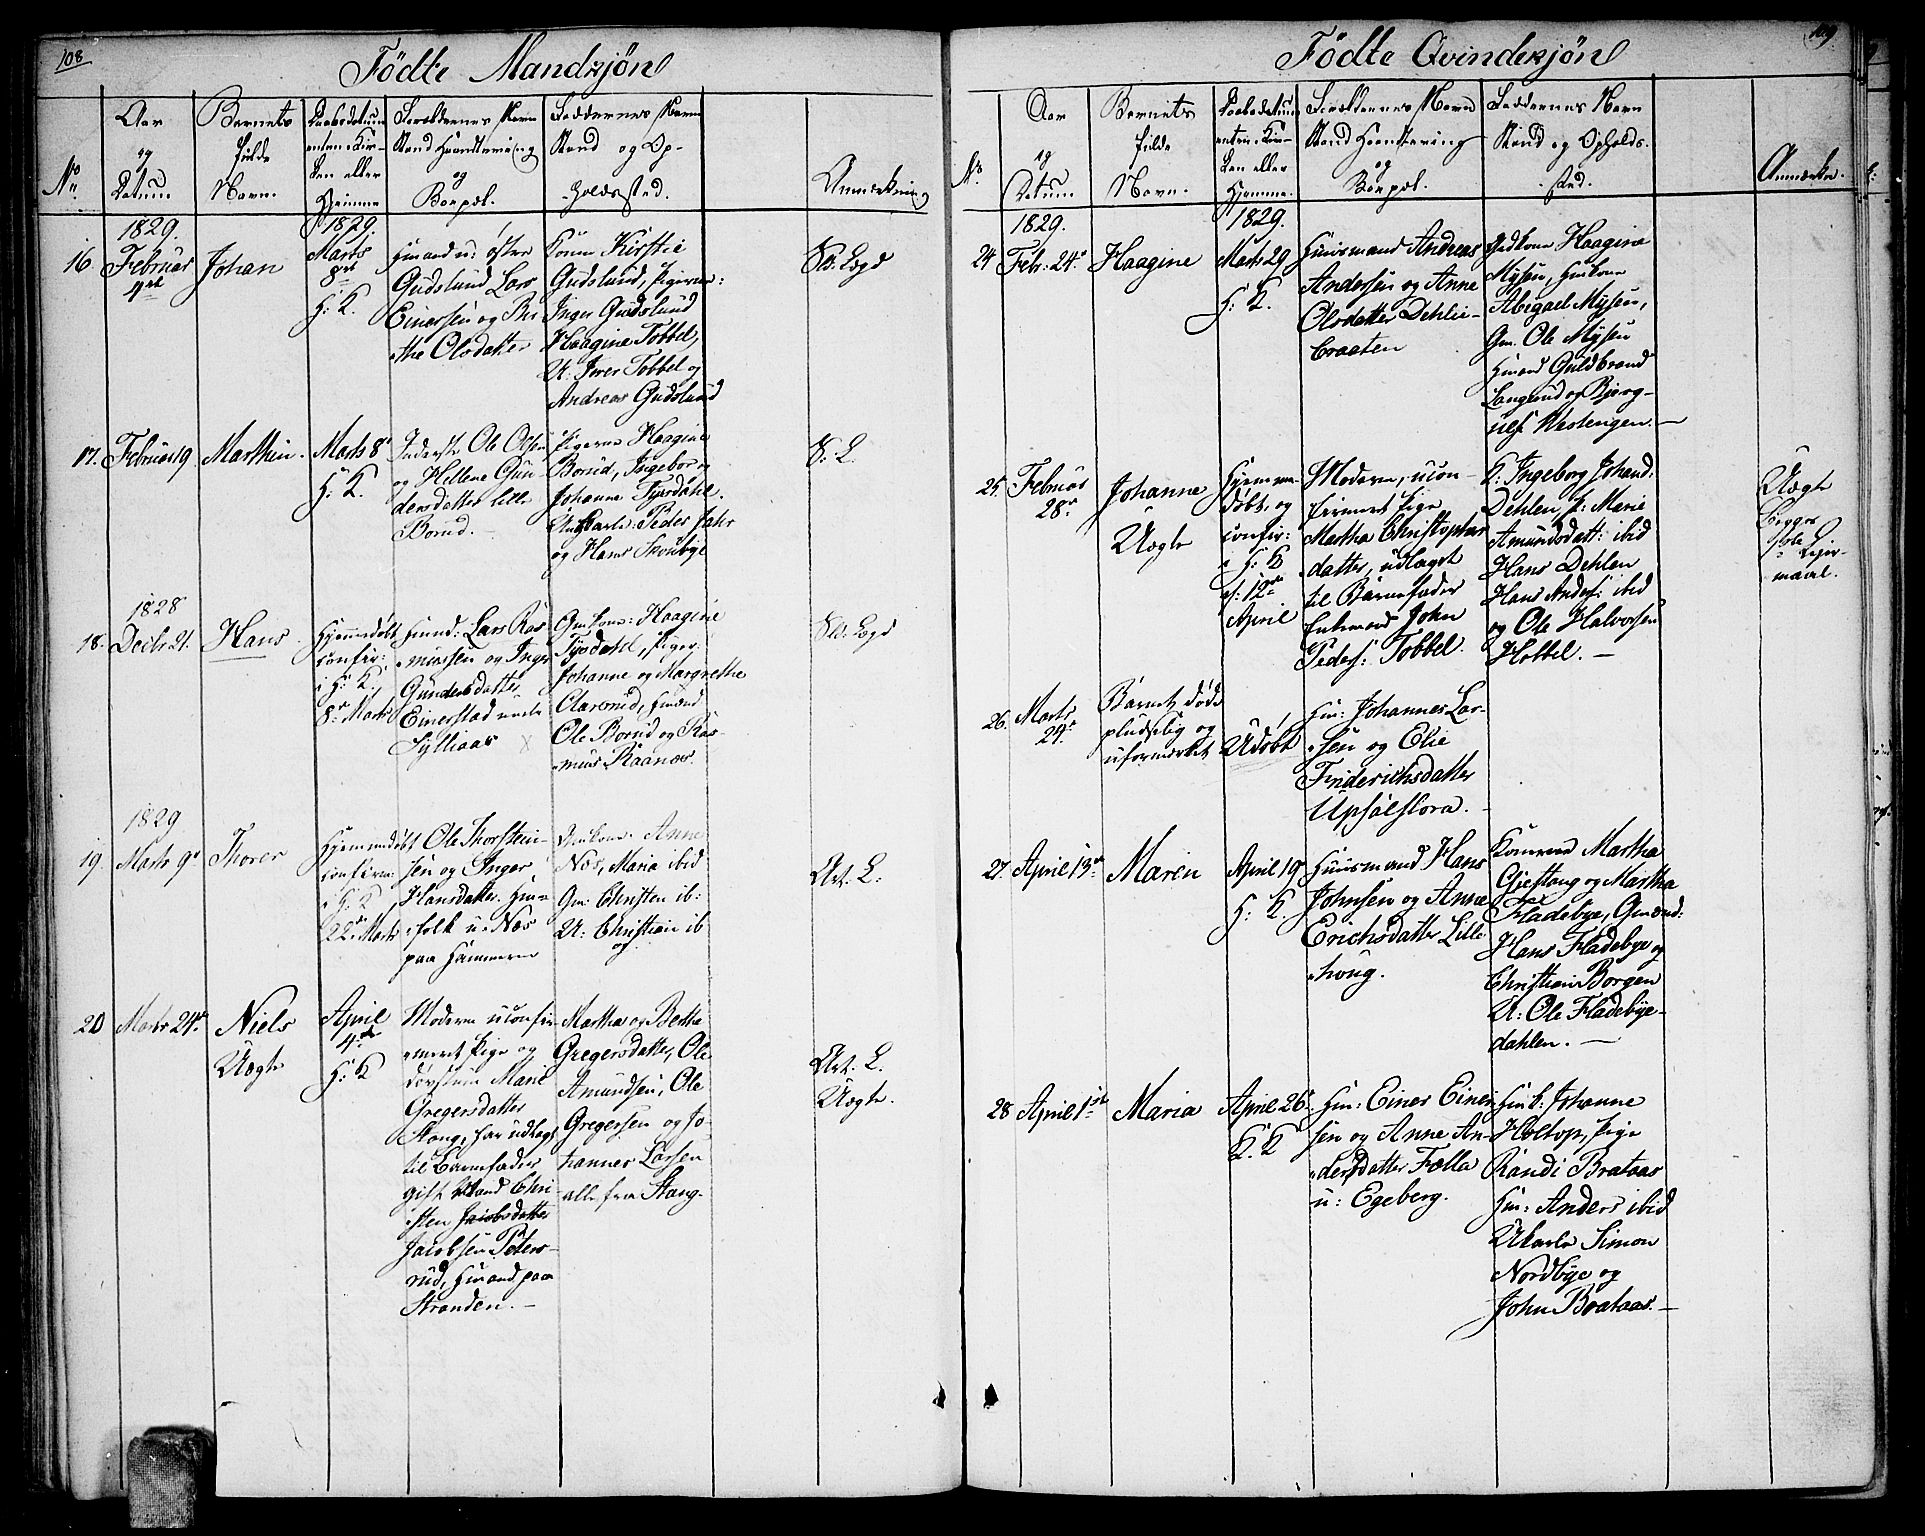 108
Födte Mandkjön
No
Aar
og
Datum
Barnets
fulde
Navn.
Daabsdatum
enten i Kir-
ken eller
Hjemme
Forældrenes Navn
Stand Haandtering
og
Boepæl.
Faddernes Navn
Stand og Op-
holdssted.
Anmærkning
1829.
1829.
16
Februar
Johan
Marts
8de
H: K.
Huusmd u: öster
Gudslund Lars
Einersen og Ber
the Olsdatter
Konen Kirstie
Gudslund, Pigerne:
Inger Gudslund
Haagine Tobbel,
U: Iver Tobbel og
Andreas Gudslund
17.
Februar 19
Marthin.
Marts 8de
H: K.
Inderst Ole Olsen
og Hellene Gun
dersdatter lille
Borud.
Pigerne Haagine
Borud, Ingebor og
Johanne Tyrsdahl.
Ungkarle: Peder Jahr
og Hans Skoubye
S: L.
1828
18.
Decbr 21.
Hans
Hjemmedöbt
confir:
i H: K.
8de Marts
Huusmd: Lars Ras
musen og Inger
Gundersdatter
Einerstad under
Sylliaas
Gmkone: Haagine
Tysdahl, Piger:
Johanne og Margrethe
Clarerud, Huusmd
Ole Borud og Ras
mus Raanas.
1829
19.
Marts 9de
Thorer
Hjemmedöbt
confirm:
i H: K
22de Marts
Ole Thorstein-
sen og Inger
Hansdatter. Huus-
folk u: Næs
paa Hammeren
Gmkone: Anne
Næs, Maria ibid
Gm: Christen ib:
U: Christian ib
og
Att. L.
20
Marts 24de
Niels
Uægte
April
4de
H: K
Moderen uconfir-
meret Pige og
Marie
Gregersdatter
Stang, har udlagt
til Barnefader
gift Mand Chri
sten Jacobsdatter
Jacobsen Peters-
rud, Huusmand paa
Stranden.
Martha og Berthe
Gregersdatter, Ole
Amundsen, Ole
Gregersen og Jo-
hannes Larsen
alle fra Stang.
Att. L.
Uægte.
109
Födte Qvindekjön
No
Aar
og
Datum.
Barnets
fulde
Navn.
Daabsdatum
enten i Kir-
ken eller
Hjemme.
Forældrenes Navn
Stand Haandtering
og
Boepæl.
Faddernes Navn
Stand og Opholds-
sted.
Anmærkn.
1829.
1829.
24
Febr: 24de
Haagine
Marts 29
H: K.
Huusmand Andreas
Andersen og Anne
Olsdatter Dehlie-
braaten
Madkone Haagine
Mysen, Huuskone
Abigael Mysen,
Gm. Ole Mysen
Huusmd Guldbrand
Langrud og Bjørg-
ulf Westengen.
25.
Februar
28de
Johanne
Uægte
Hjemme-
döbt, og
confir:
i H: K
d: 12te
April
Moderen, ucon-
firmeret Pige
Martha Christophers
datter, udlagt
til Barnefader
Enkemand John
Peders: Tobbel.
K: Ingeborg Johand:
Dehlen, P: Marie
Amundsdatt: ibid
Hans Dehlen
Hans Anders: ibid
og Ole Halvorsen
Hobbel.
Uægte
Begges
1ste Leier-
maal.
26.
Marts
29.
Barnet döde
pludselig og
uformærket
Udöbt
Huusm: Johannes Lar-
sen og Elie
Friderichsdatter
Upsalslora.
27.
April 13de
Maren
April 19
H: K.
Huusmand Hans
Johnsen og Anne
Erichsdatter Lille
houg.
Konerne Martha
Gjestang og Martha
Fladebye, Gmænd:
Hans Fladebye og
Christian Borgen
U: Ole Fladebye-
dahlen.
28
April 1ste
Maria
April 26de
H: K
Huusm: Einer Einer
sen og Anne An-
dersdatter Fælla
u: Egeberg.
Huusk: Johanne
Holtop, Pige
Randi Brataas
Huusm: Anders ibid
Ukarle Simon
Nordbye og
John Brataas.